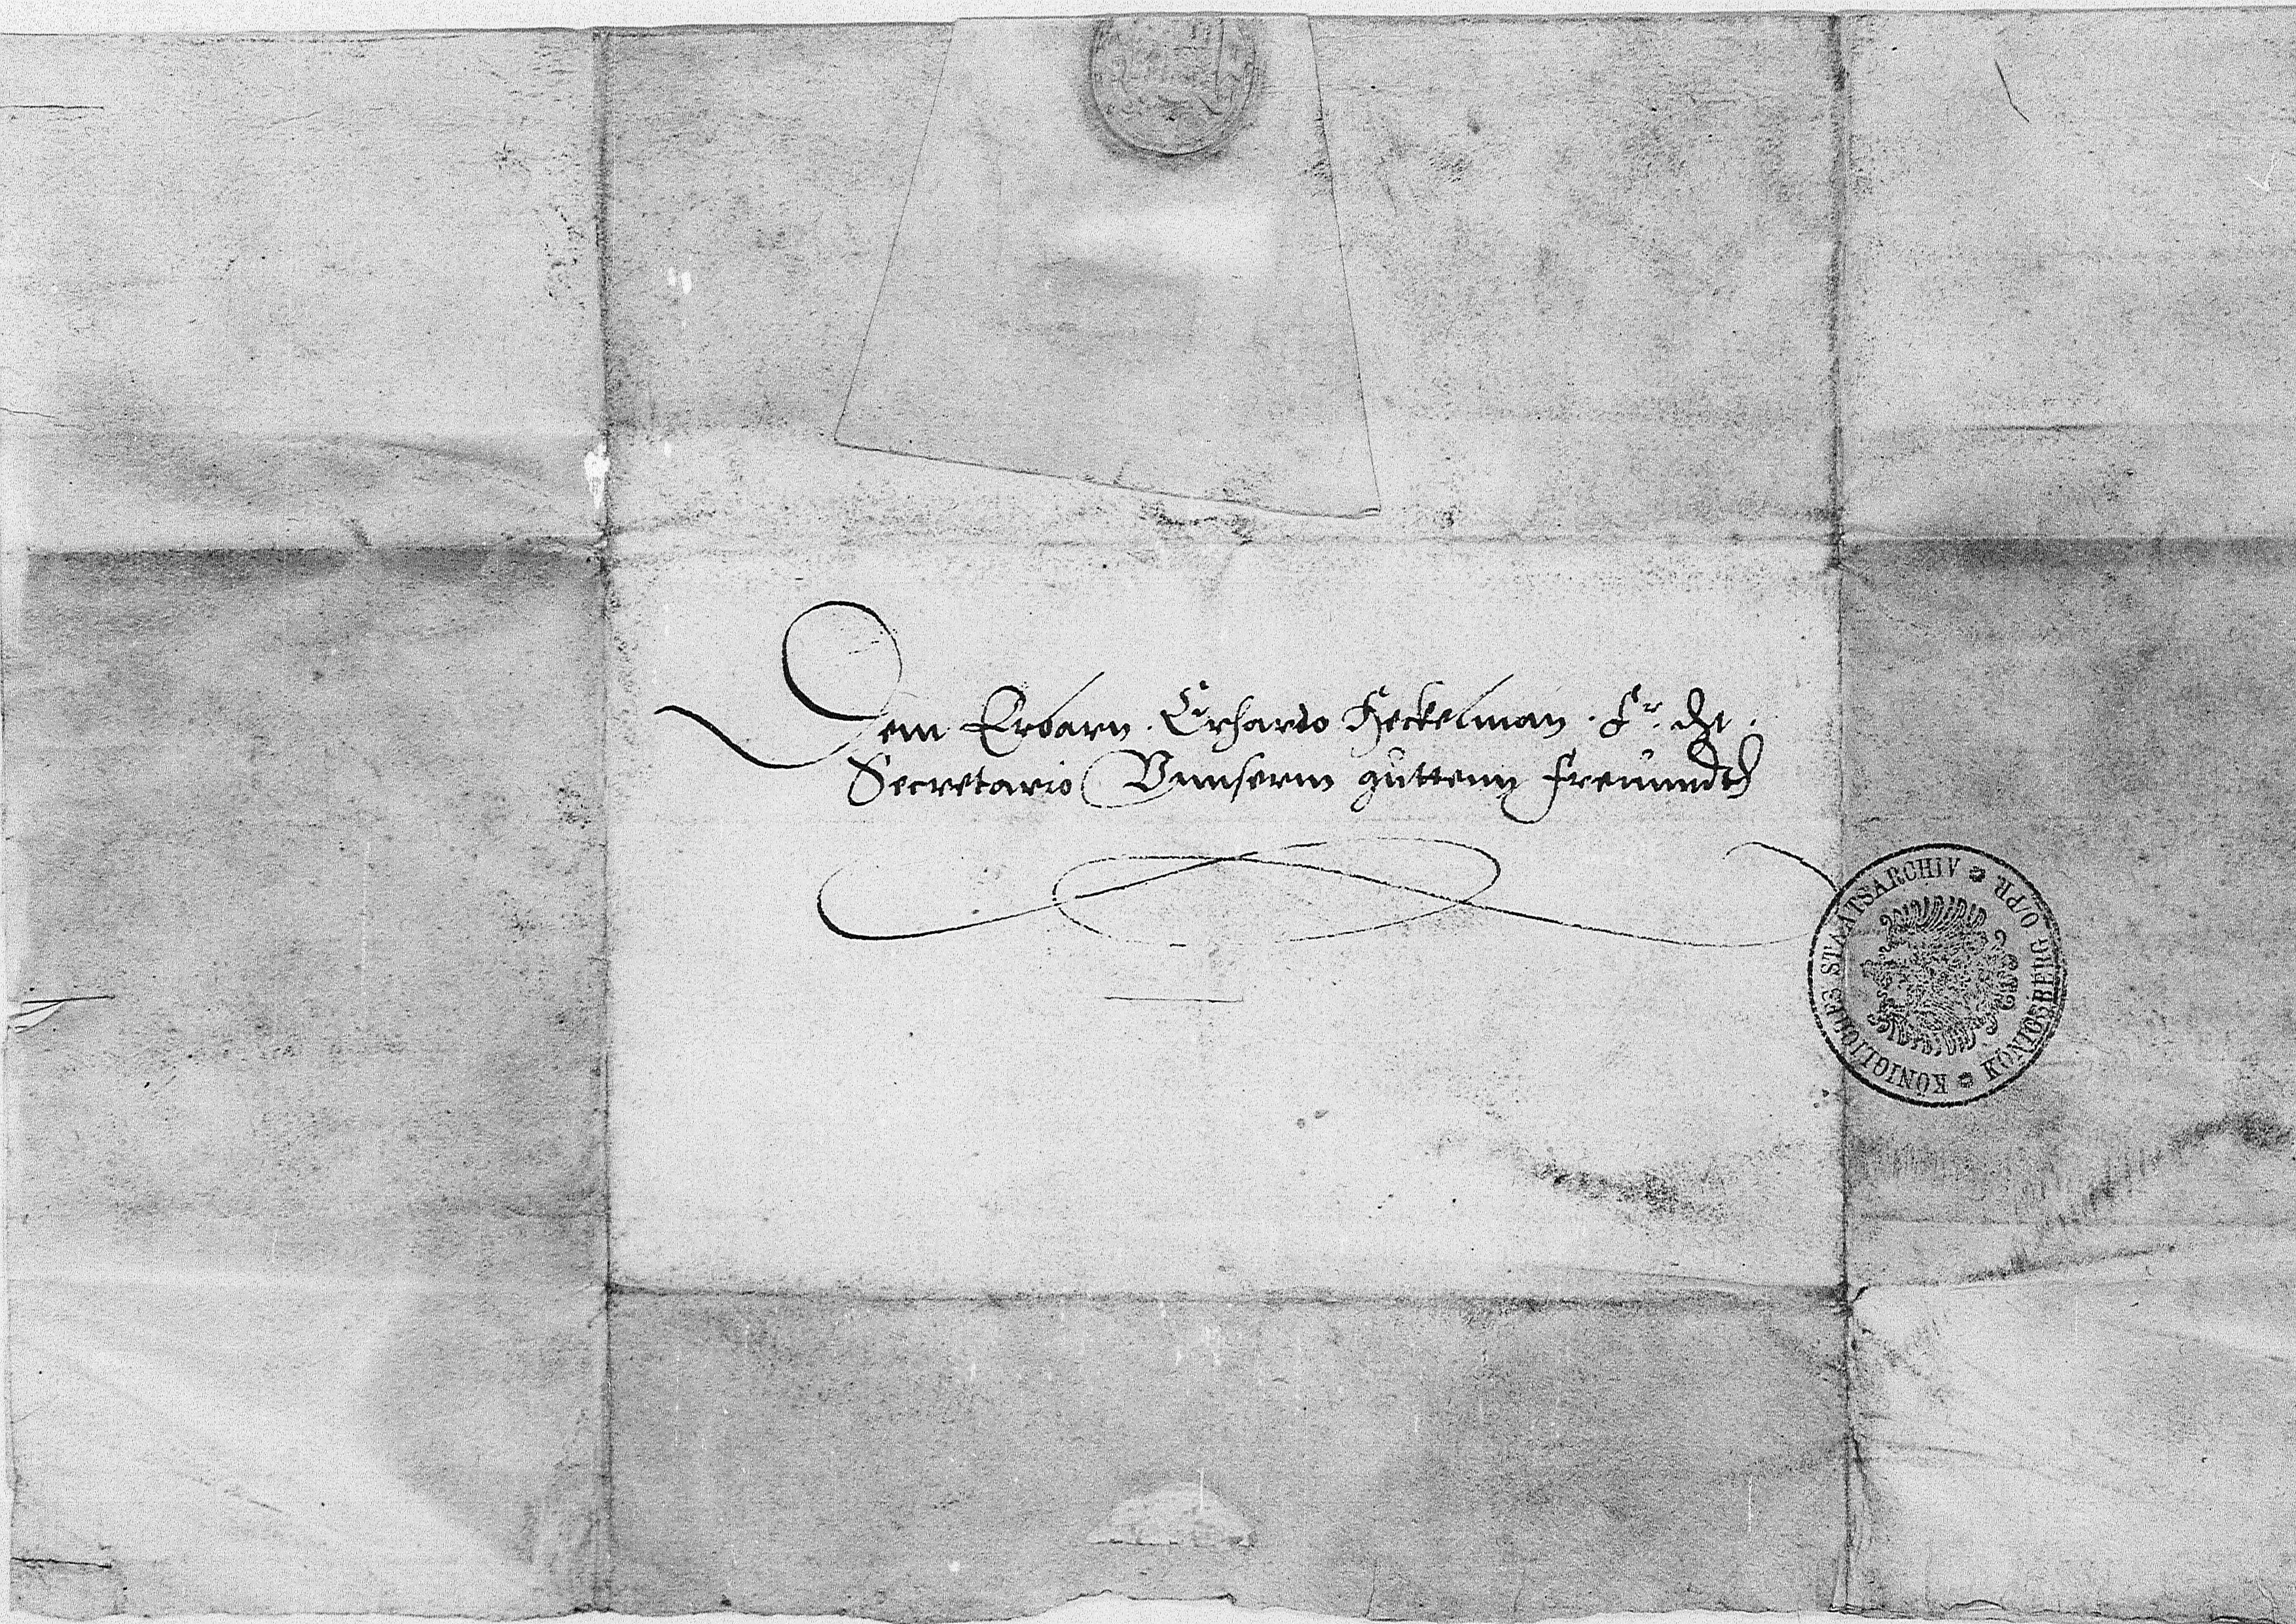 Dem Erbarn. Erhardo Heckelman. Fr. dht.
Secretario Vnnserm guttenn freunndth
KÖNIGLICHES STAATSARCHIV KÖNIGSBERG O/PR.